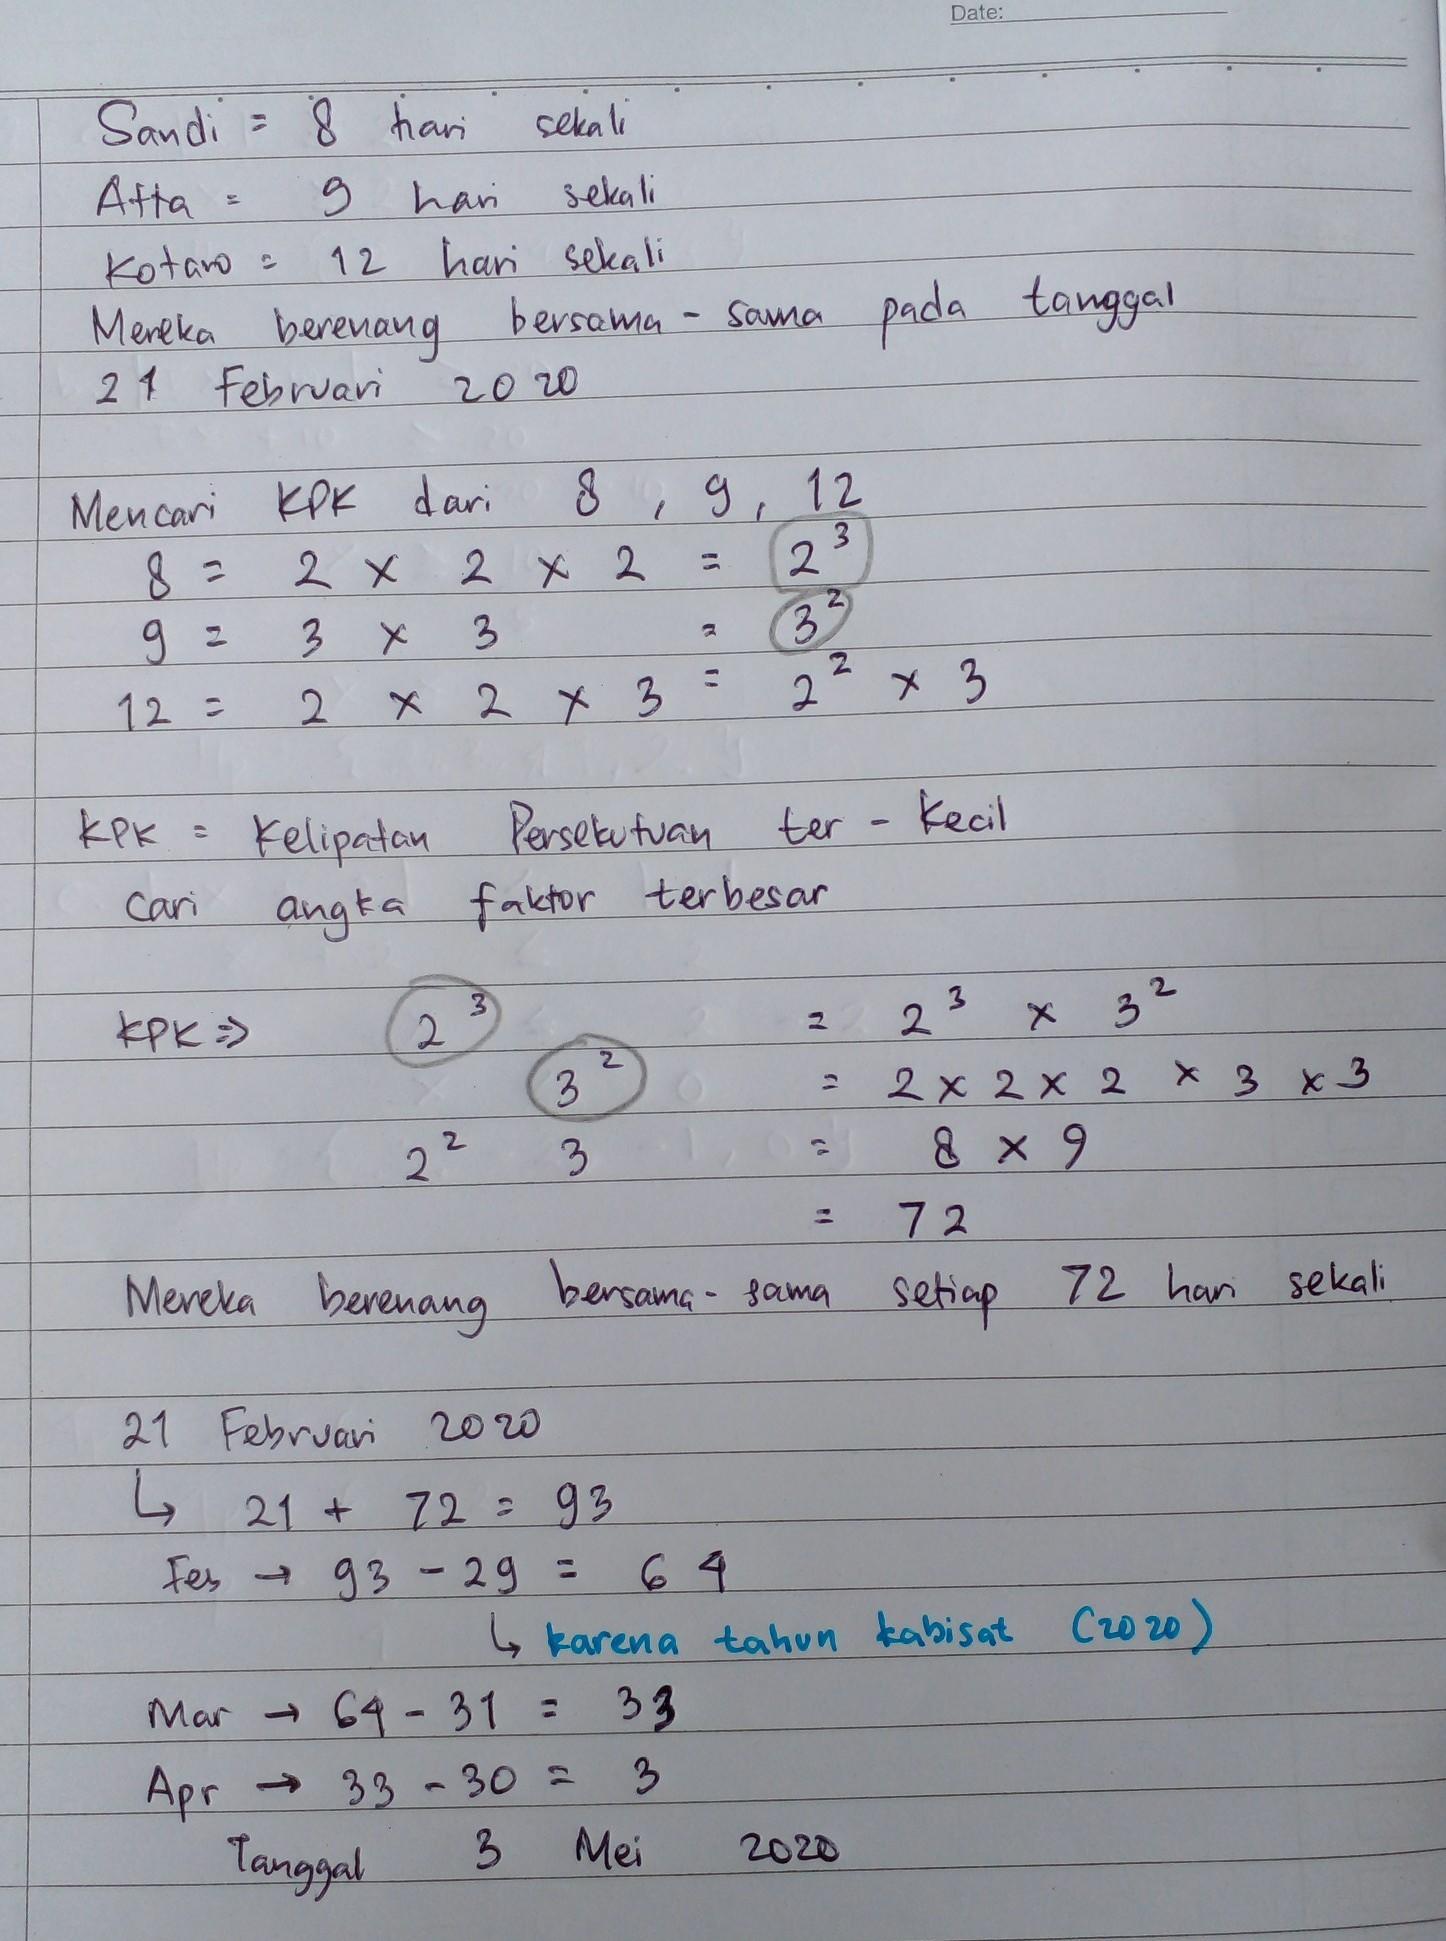 Date:
Sandi = 8 hari sekali
Afta = 9 hari sekali
Kotaro = 12 hari sekali
Mereka berenang bersama - sama pada tanggal
21 Februari 2020
Mencari KPK dari 8 , 9 , 12
8 = 2 x 2 x 2 = 2³
9 = 3 x 3 = 3²
12 = 2 x 2 x 3 = 2² x 3
KPK = Kelipatan Persekutuan ter - Kecil
Cari angka faktor terbesar
KPK => 2³ = 2³ x 3²
3² = 2 x 2 x 2 x 3 x 3
2² 3 = 8 x 9
= 72
Mereka berenang bersama - sama setiap 72 hari sekali
21 Februari 2020
↳ 21 + 72 = 93
Feb → 93 - 29 = 64
↳ karena tahun kabisat (2020)
Mar → 64 - 31 = 33
Apr → 33 - 30 = 3
Tanggal 3 Mei 2020